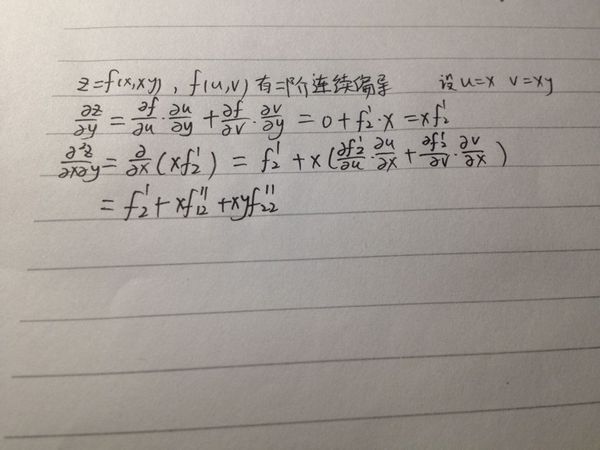 z=f(x,xy), f(u,v)有二阶连续偏导 设u=x v=xy
∂z/∂y = ∂f/∂u · ∂u/∂y + ∂f/∂v · ∂v/∂y = 0 + f₂' · x = xf₂'
∂²z/∂x∂y = ∂/∂x (xf₂') = f₂' + x(∂f₂'/∂u · ∂u/∂x + ∂f₂'/∂v · ∂v/∂x)
= f₂' + xf₁₂'' + xyf₂₂''